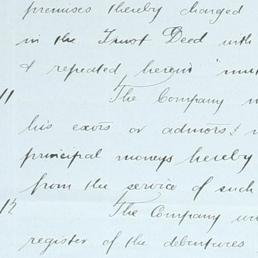 premises thereby charged
in the Trust Deed with
& repeated herein "mu
11 The Company
his exors or admors!
principal moneys hereby
from the service of such
12 The Company
register of the debentures